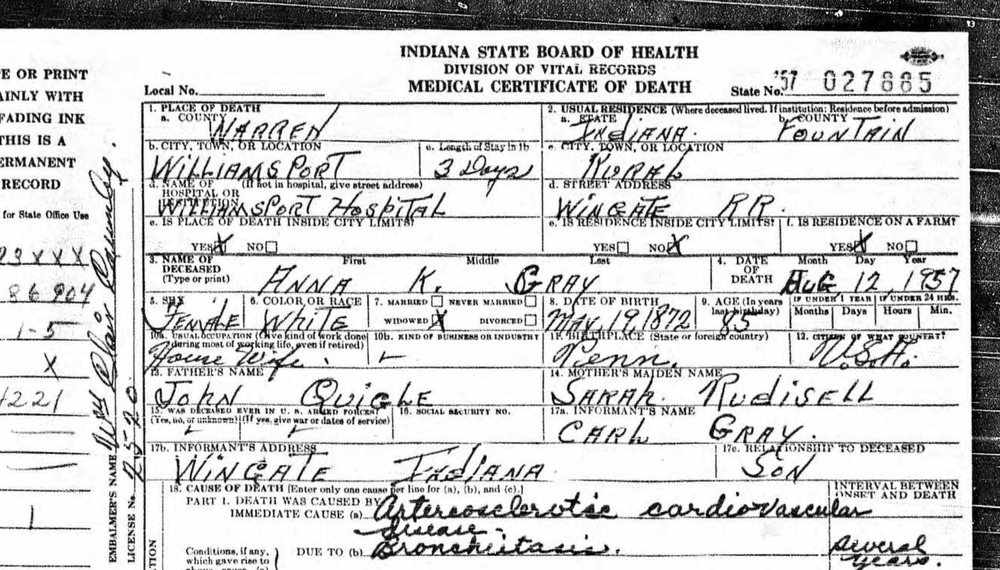 INDIANA STATE BOARD OF HEALTH
DIVISION OF VITAL RECORDS
MEDICAL CERTIFICATE OF DEATH
Local No.
State No. '57 027885
E OR PRINT
AINLY WITH
FADING INK
THIS IS A
ERMANENT
RECORD
for State Office Use
86904
1-5
X
4221
1
EMBALMER'S NAME
LICENSE No.
1. PLACE OF DEATH
a. COUNTY WARREN
2. USUAL RESIDENCE (Where deceased lived. If institution: Residence before admission)
a. STATE INDIANA. b. COUNTY FOUNTAIN
b. CITY, TOWN, OR LOCATION WILLIAMSPORT
c. Length of Stay in 1b 3 Days
c. CITY, TOWN, OR LOCATION RURAL
d. NAME OF HOSPITAL OR INSTITUTION (If not in hospital, give street address)
WILLIAMSPORT HOSPITAL
d. STREET ADDRESS
WINGATE RR.
e. IS PLACE OF DEATH INSIDE CITY LIMITS?
YES X NO
e. IS RESIDENCE INSIDE CITY LIMITS?
YES NO X
f. IS RESIDENCE ON A FARM?
YES X NO
3. NAME OF DECEASED (Type or print)
First Middle Last
ANNA K. GRAY
4. DATE OF DEATH Month Day Year
AUG. 12, 1957
5. SEX FEMALE
6. COLOR OR RACE White
7. MARRIED NEVER MARRIED
WIDOWED X DIVORCED
8. DATE OF BIRTH
MAY 19 1872
9. AGE (In years last birthday) 85
IF UNDER 1 YEAR Months Days
IF UNDER 24 HRS. Hours Min.
10a. USUAL OCCUPATION (Give kind of work done during most of working life, even if retired)
House Wife
10b. KIND OF BUSINESS OR INDUSTRY
11. BIRTHPLACE (State or foreign country)
Penn.
12. CITIZEN OF WHAT COUNTRY?
U.S.A.
13. FATHER'S NAME
JOHN QUIGLE
14. MOTHER'S MAIDEN NAME
SARAH RUDISELL
15. WAS DECEASED EVER IN U. S. ARMED FORCES?
(Yes, no, or unknown) (If yes, give war or dates of service)
16. SOCIAL SECURITY NO.
17a. INFORMANT'S NAME
CARL GRAY.
17b. INFORMANT'S ADDRESS
WINGATE INDIANA
17c. RELATIONSHIP TO DECEASED
SON
18. CAUSE OF DEATH [Enter only one cause per line for (a), (b), and (c).]
PART 1. DEATH WAS CAUSED BY
IMMEDIATE CAUSE (a) Arteriosclerotic cardiovascular
disease.
INTERVAL BETWEEN
ONSET AND DEATH
Conditions, if any,
which gave rise to
DUE TO (b) Bronchiectasis.
several
years.